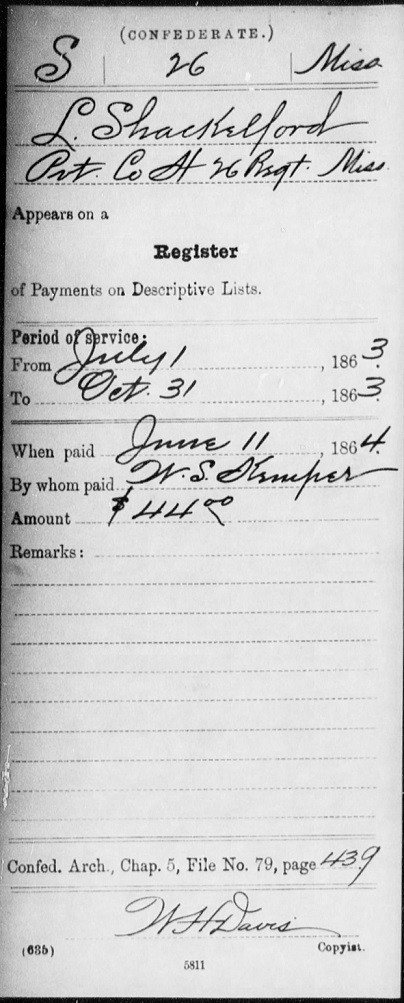 (CONFEDERATE.)
S | 26 | Miss
L. Shackelford
Pvt. Co H 26 Regt. Miss.
Appears on a
Register
of Payments on Descriptive Lists.
Period of service:
From July 1, 1863.
To Oct. 31, 1863.
When paid June 11, 1864.
By whom paid W. S. Kemper
Amount $44 00
Remarks:
Confed. Arch., Chap. 5, File No. 79, page 439
W H Davis
(635) Copyist.
5811